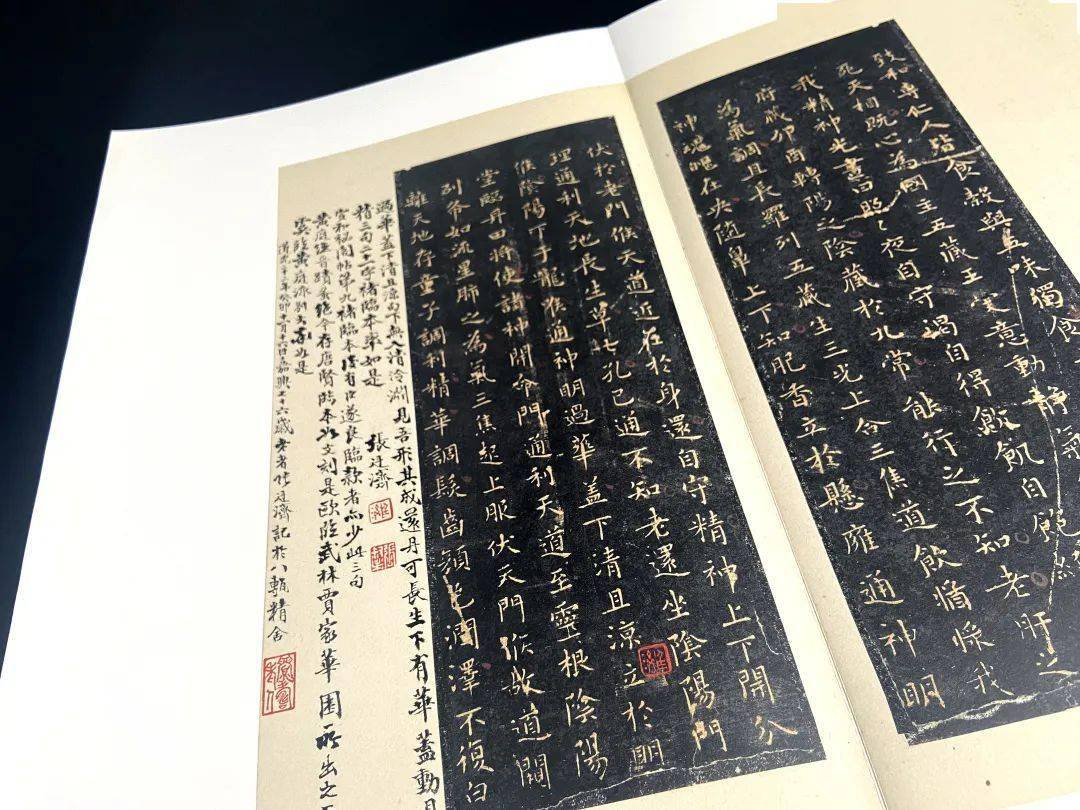 致和專仁人皆食穀與五味獨食
死夭相既心為國主五藏王受意動靜氣
我精神光晝日照〻夜自守渴自得飲飢自飽
府藏卯酉轉陽之陰藏於九常能行之不知老肝之
為氣調且長羅列五藏生三光上合三焦道飲我
神魂魄在央隨鼻上下知肥香立於懸雍通神明
伏於老門候天道近在於身還自守精神上下開分
理通利天地長生草七孔已通不知老還坐陰陽門
候陰陽下于嚨喉通神明過華蓋下清且涼立於明
堂臨丹田將使諸神開命門通利天道至靈根陰陽
列布如流星肺之為氣三焦起上服伏天門候故道闚
離天地存童子調利精華調髮齒顏色潤澤不復白
過華蓋下清且涼句下無入清泠淵見吾形其成還丹可長生下有華蓋動見
精三句二十一字褚臨本率如是 張廷濟
宣和秘閣帖第九褚臨本後有臣遂良臨款者亦少此三句
黃庭蹟絕今存唐賢臨本此文刻是歐臨武林賈家華園所出之
陰黃庭派別是
道光二十三年癸卯十二月十六日嘉興七十六歲老者張廷濟記於八甎精舍